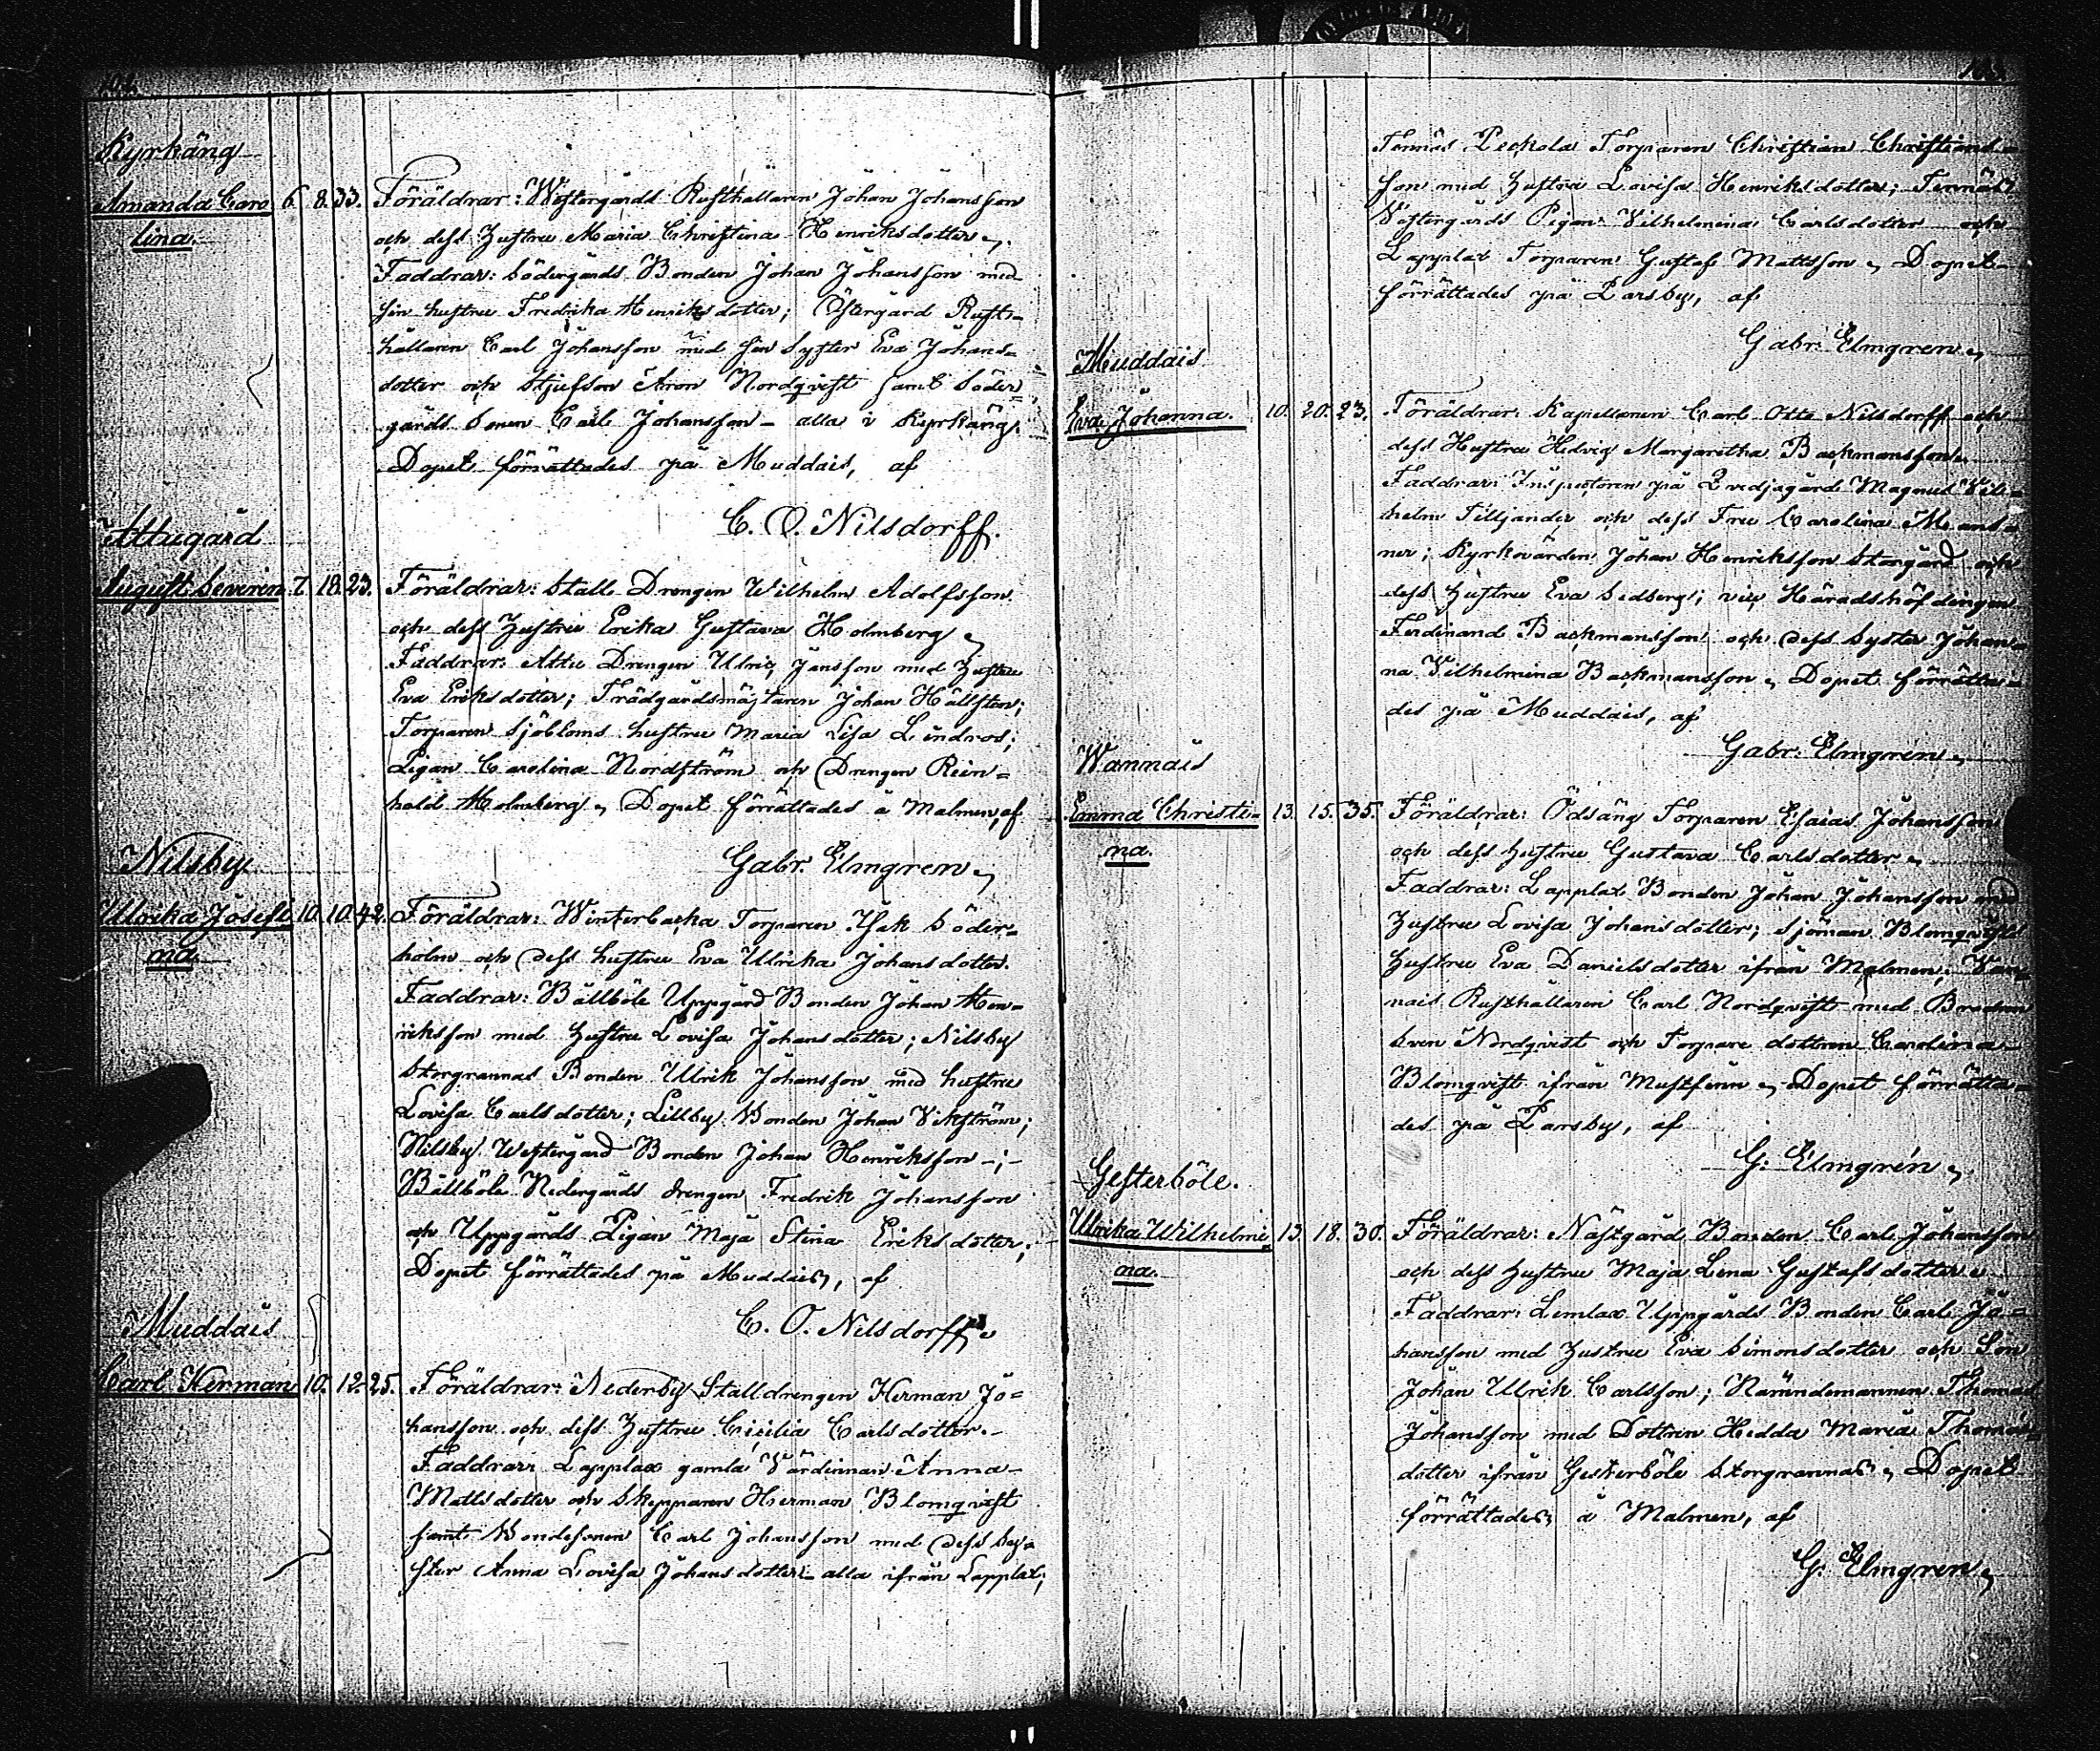 Kyrkäng
Amanda Caro 6. 8. 33. Föräldrar: Westergårds Rusthållaren Johan Johansson
lina. och dess Hustru Maria Christina Henriksdotter
Faddrar: Södergårds Bonden Johan Johansson med
sin hustru Fredrika Henriksdotter; Östergård Rust-
hållaren Carl Johansson med sin Syster Eva Johans-
dotter och Stjufson Aron Nordqvist samt Söder
gårds Sonen Carl Johansson - alla i Kyrkäng.
Dopet förrättades på Muddais, af
C. O. Nilsdorff.
Attugård
August Severin 7. 18. 23. Föräldrar: Stall-Drengen Wilhelm Adolfsson
och dess Hustru Erika Gustava Holmberg
Faddrar: Attu Drengen Ulric Jansson med Hustru
Eva Eriksdotter; Trädgårdsmästaren Johan Hällsten;
Torparen Sjöbloms hustru Maria Lisa Lindros;
Pigan Carolina Nordström och Drengen Rein=
hold Holmberg, Dopet förrättades å Malmen, af
Gabr. Elmgren
Nilsby
Ulrika Josefi 10. 10. 42. Föräldrar: Winterbacka Torparen Isak Söder-
na. holm och dess hustru Eva Ulrika Johansdotter.
Faddrar: Bällböle Uppgård Bonden Johan Hen-
riksson med Hustru Lovisa Johansdotter; Nilsby
Storgrannas Bonden Ulrik Johansson med hustru
Lovisa Carlsdotter; Lillby Bonden Johan Vikström;
Nilsby Westergård Bonden Johan Henriksson -;-
Bällböle Nedergårds drengen Fredrik Johansson
och Uppgårds Pigan Maja Stina Eriksdotter;
Dopet förrättades på Muddais, af
C. O. Nilsdorff
Muddais
Carl Herman 10. 12. 25. Föräldrar: Nederby Stalldrengen Herman Jo=
hansson och dess Hustru Cicilia Carlsdotter.-
Faddrar: Lapplax gamla Värdinnan Anna
Mattsdotter och Skepparen Herman Blomqvist
samt Bondesonen Carl Johansson med dess Sy=
ster Anna Lovisa Johansdotter - alla ifrån Lapplax;
Tennäs Peckola Torparen Christian Christians=
son med Hustru Lovisa Henriksdotter; Tennäs
Vestergårds Pigan Vilhelmina Carlsdotter och
Lapplax Torparen Gustaf Mattsson, Dopet
förrättades på Parsby, af
Gabr. Elmgren
Muddais
Eva Johanna. 10. 20. 23. Föräldrar: Kapellanen Carl Otto Nilsdorff och
dess Hustru Hedvig Margaretha Backmansson
Faddrar: Inspectoren på Qvidjagård Magnus Vil=
helm Tilljander och dess Fru Carolina Mans=
ner; Kyrkovärden Johan Henriksson Storgård och
dess Hustru Eva Sedberg; vice Häradshöfdingen
Ferdinand Backmansson och dess Syster Johan=
na Vilhelmina Backmansson, Dopet förrätta=
des på Muddais, af
Gabr. Elmgren
Wannais
Emma Christi= 13. 15. 35. Föräldrar: Ödsäng Torparen Esaias Johansson
na. och dess Hustru Gustava Carlsdotter
Faddrar: Lapplax Bonden Johan Johansson med
Hustru Lovisa Johansdotter; Sjöman Blomqvists
Hustru Eva Danielsdotter ifrån Malmen; Van=
nais Rusthållaren Carl Nordqvist med Brodren
Sven Nordqvist och Torpare dottren Carolina
Blomqvist ifrån Mustfinn, Dopet förrätta=
des på Parsby, af
G. Elmgren
Gesterböle.
Ulrika Wilhelmi 13. 18. 30. Föräldrar: Nästgård Bonden Carl Johansson
na. och dess Hustru Maja Lena Gustafsdotter
Faddrar: Lemlax Uppgårds Bonden Carl Jo=
hansson med Hustru Eva Simonsdotter och Son
Johan Ulrik Carlsson; Nämndemannen Thomas
Johansson med Dottren Hedda Maria Thomas=
dotter ifrån Gesterböle Storgrannas, Dopet
förrättades å Malmen, af
G. Elmgren